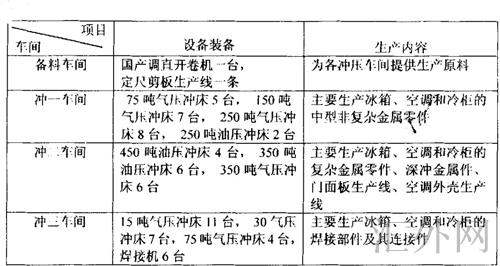 项目
车间
设备装备
生产内容
备料车间
国产调直开卷机一台，
定尺剪板生产线一条
为各冲压车间提供生产原料
冲一车间
75吨气压冲床5台，150吨
气压冲床7台，250吨气压冲
床8台，250吨油压冲床2台
主要生产冰箱、空调和冷柜的
中型非复杂金属零件
冲二车间
450吨油压冲床4台，350吨
油压冲床6台，350吨气压冲
床6台
主要生产冰箱、空调和冷柜的
复杂金属零件、深冲金属件、
门面板生产线、空调外壳生产
线
冲三车间
15吨气压冲床11台，30气压
冲床7台，75吨气压冲床4台，
焊接机6台
主要生产冰箱、空调和冷柜的
焊接部件及其连接件
汇外网